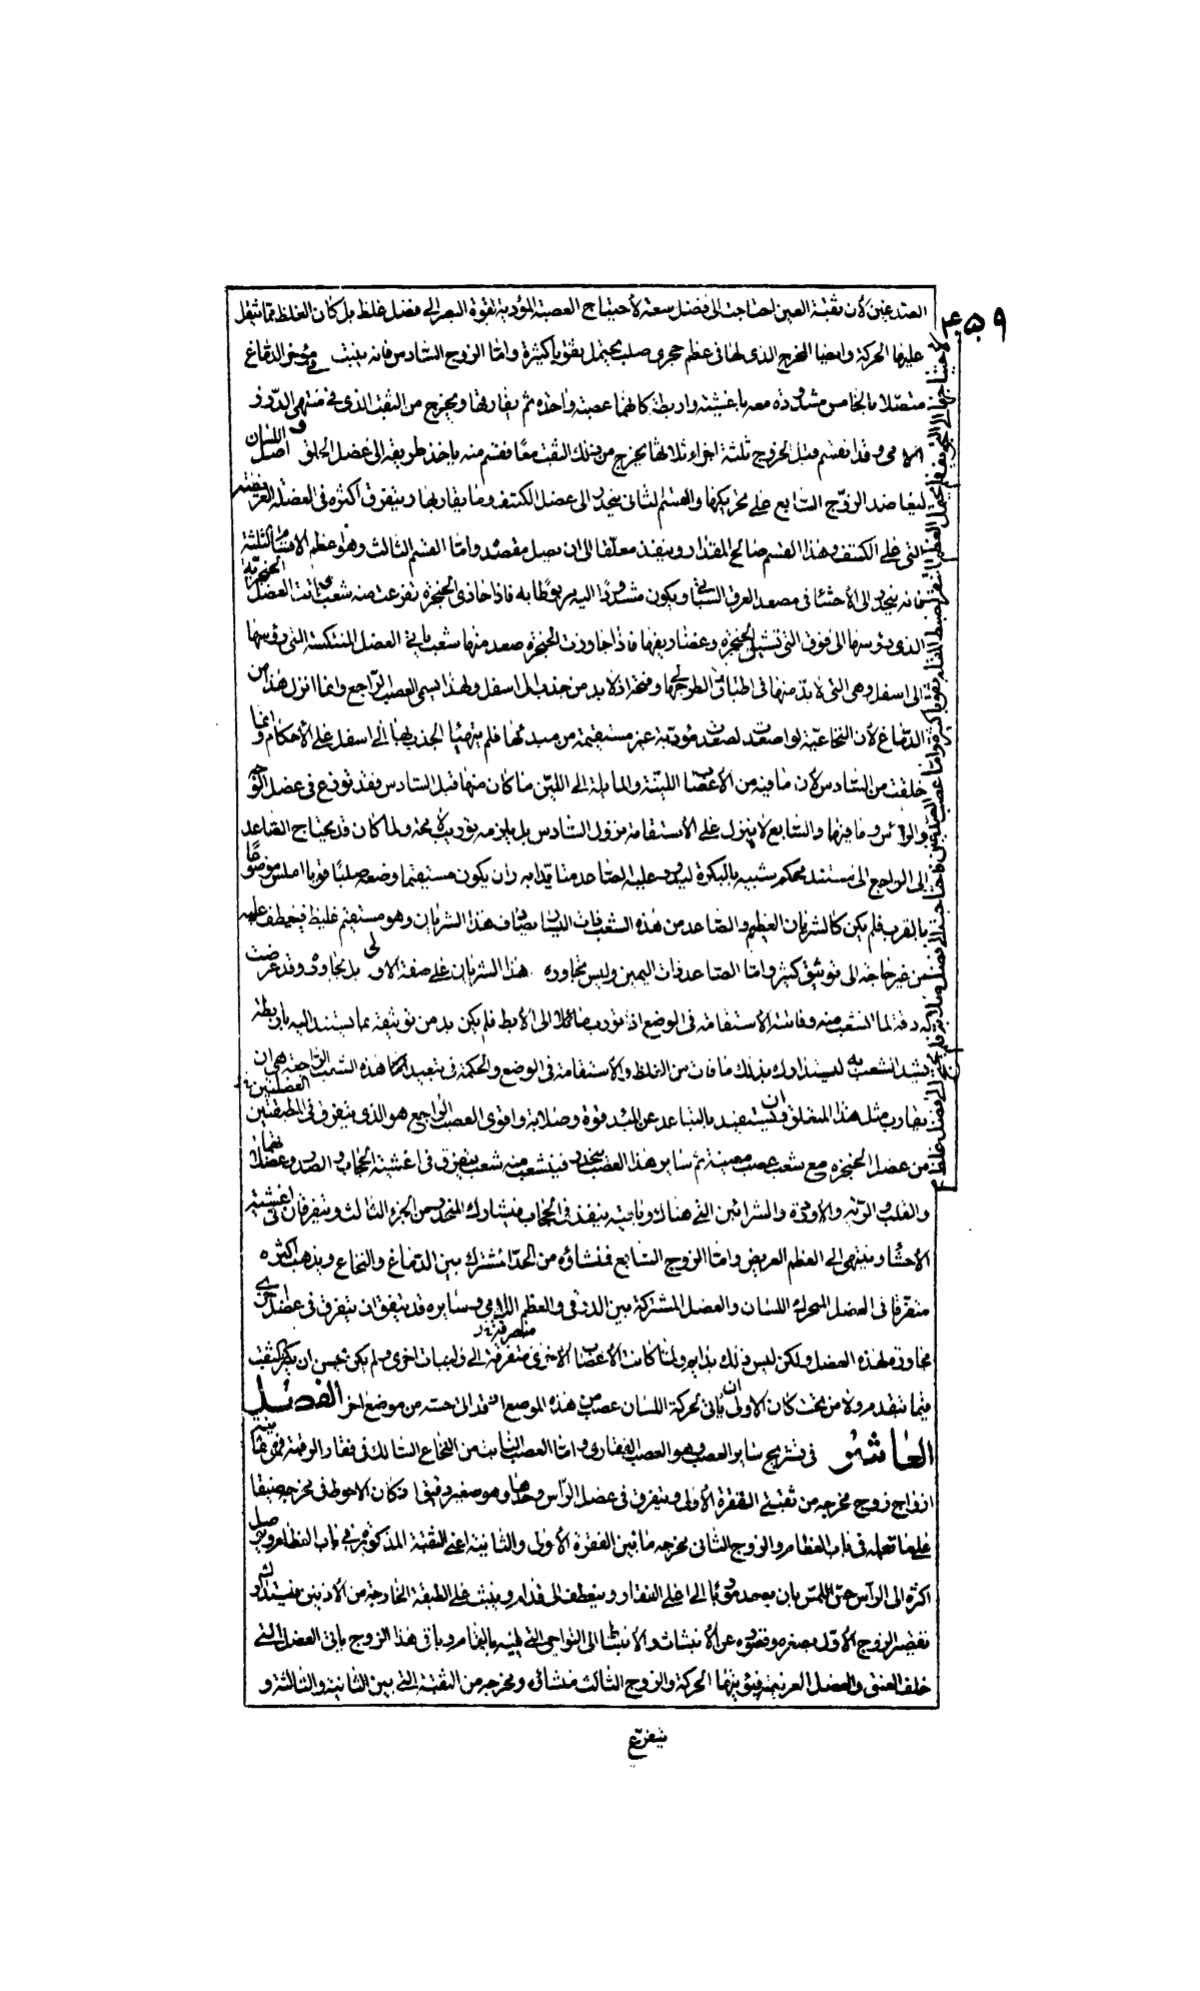 ٤٥٩
الصدغين لأن ثقبة العين احتاجت الى فضل سعة لأحتياج العصبة المؤدية لقوة البصر الى فضل غلظ بل كان الغلظ مما يثقل
عليها الحركة وايضا المخرج الذى لها فى عظم حجرى صلب يحتمل ثقوبا كثيرة واما الزوج السادس فانه ينبت من مؤخر الدماغ
متصلا بالخامس مشدودة معه باغشية واربطة كانهما عصبة واحدة ثم يفارقها ويخرج من الثقب الذى فى منتهى الدرز
اللامى وقد انقسم قبل الخروج ثلثة اجزاء ثلاثها يخرج من ذلك الثقب معًا فقسم منه يأخذ طريقه الى عضل الحلق و اصل اللسان
ليعاضد الزوج السابع على تحريكها والقسم الثانى ينحدر الى عضل الكتف وما يقاربها ويتفرق اكثره فى العضلة العريضة
التى على الكتف وهذا القسم صالح المقدار وينفذ معلقا الى ان يصل مقصده واما القسم الثالث وهو اعظم الاقسام الثلثة
فانه ينحدر الى الأحشا فى مصعد العرق السباتى ويكون مشدودًا اليه مربوطًا به فاذا حاذى الحنجرة تفرعت منه شعب و اتت العضل الحنجرية
الذى رؤسها الى فوق التى تشيل الحنجرة وغضاريفها فاذا جاوزت الحنجرة صعد منها شعب يأتى العضل المنتكسة التى رؤسها
الى اسفل وهى التى لا بد منها فى اطباق الطرجهالى وفتحه اذ لا بد من جذب الى اسفل ولهذا يسمى العصب الراجع وانما انزل هذا من
الدماغ لأن النخاعية لو اصعدت لصعدت مؤربة غير مستقيمة من مبدئها فلم يتهيأ الجذب بها الى اسفل على الأحكام وانما
خلقت من السادس لأن ما فيه من الأعصاب اللينة والمايلة الى اللين ما كان منها قبل السادس فقد توزع فى عضل الوجه
والرأس وما فيها والسابع لا ينزل على الأستقامة نزول السادس بل يلزمه توريب لا محة ولما كان قد يحتاج الصاعد
الى الراجع الى مستند محكم شبيه بالبكرة ليدور عليه الصاعد متأيدا به وان يكون مستقيما وضعه صلبًا قويا املس موضوعًا
بالقرب فلم يكن كالشريان العظيم والصاعد من هذه الشعب ذات اليسار يصادف هذا الشريان وهو مستقيم غليظ فيعطف عليه
من غير حاجة الى توثيق كثير واما الصاعد ذات اليمين وليس يجاوره هذا الشريان على صفة الاولى بل يجاوره وقد عرضت
له دقة لما انشعب منه وفاتته الأستقامة فى الوضع اذ تورب مائلا الى الأبط فلم يكن بد من توثيقه بما يستند اليه باربطة
تشد الشعب به ليتدارك بذلك ما فات من الغلظ والأستقامة فى الوضع والحكمة فى تبعيد هذه الشعب الراجعة هى ان
يقارب مثل هذا المتعلق وان يستفيد بالتباعد عن المبدء قوة وصلابة واقوى العصب الراجع هو الذى يتفرق فى الطبقتين العضلتين
من عضل الحنجرة مع شعب عصب معينة ثم ساير هذا العصب ينحدر فيتشعب منه شعب يتفرق فى اغشية الحجاب والصدر وعضلاتهما
والقلب والرئة والأوردة والشرائين التى هناك وباقيه ينفذ فى الحجاب فيشارك المنحدر من الجزء الثالث ويتفرقان فى اغشية
الأحشاء وينتهى الى العظم العريض واما الزوج السابع فمنشاؤه من الحد المشترك بين الدماغ والنخاع ويذهب اكثره
متفرقا فى العضل المحركة اللسان والعضل المشتركة بين الدرقى والعظم اللامى وسايره قد يتفق ان يتفرق فى عضل اخرى
مجاورة لهذه العضل ولكن ليس ذلك بدايم ولما كانت الأعصاب الاخرى منصرفة الى واجبات اخرى ولم يكن يحسن ان يكثر الثقب
فيما يتقدم ولا من تحت كان الاولى ان يأتى لحركة اللسان عصب من هذه الموضع اذ قد اتى حسه من موضع اخر الفصل
العاشر فى تشريح ساير العصب وهو العصب الفقارى واما العصب النابت من النخاع السالك فى فقار الرقبة فهو ثمانية
ازواج زوج مخرجه من ثقبتى الفقرة الأولى ويتفرق فى عضل الرأس وحدها وهو صغير دقيق اذ كان الاحوط فى مخرجه ضيقا
على ما تعلمه فى باب العظام والزوج الثانى مخرجه ما بين الفقرة الأولى والثانية اعنى الثقبة المذكورة فى باب العظام ويوصل
اكثره الى الرأس حس اللمس بان يصعد موربا الى اعلى الفقار وينعطف الى قدام وينبث على الطبقة الخارجة من الأذنين فيتدارك
تقصير الزوج الأول لصغره وقصوره عن الأنبثاث والأنبساط الى النواحى التى يليه بالتمام وباقى هذا الزوج يأتى العضل التى
خلف العنق والعضل العريضة فيؤتيها الحركة والزوج الثالث منشائه ومخرجه من الثقبة التى بين الثانية والثالثة و
يتفرع